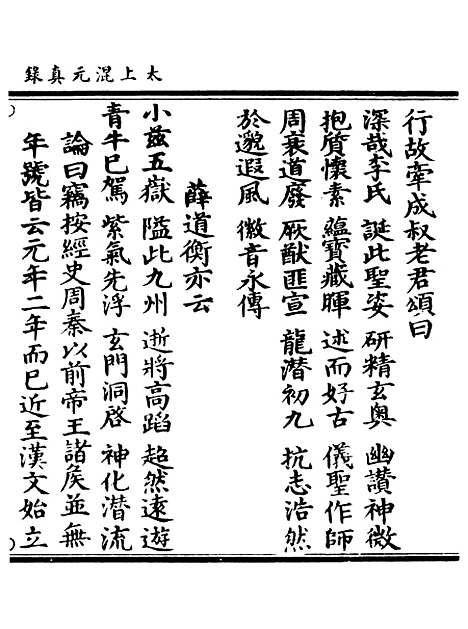 太上混元真錄
行故牽成叔老君頌曰
深哉李氏 誕此聖姿 研精玄奧 幽讚神微
抱質懷素 蘊寶藏暉 述而好古 儀聖作師
周衰道廢 厥猷匪宣 龍潛初九 抗志浩然
於邈遐風 徽音永傳
薛道衡亦云
小茲五嶽 隘此九州 逝將高蹈 超然遠遊
青牛已駕 紫氣先浮 玄門洞啓 神化潛流
論曰竊按經史周秦以前帝王諸侯並無
年號皆云元年二年而已近至漢文始立